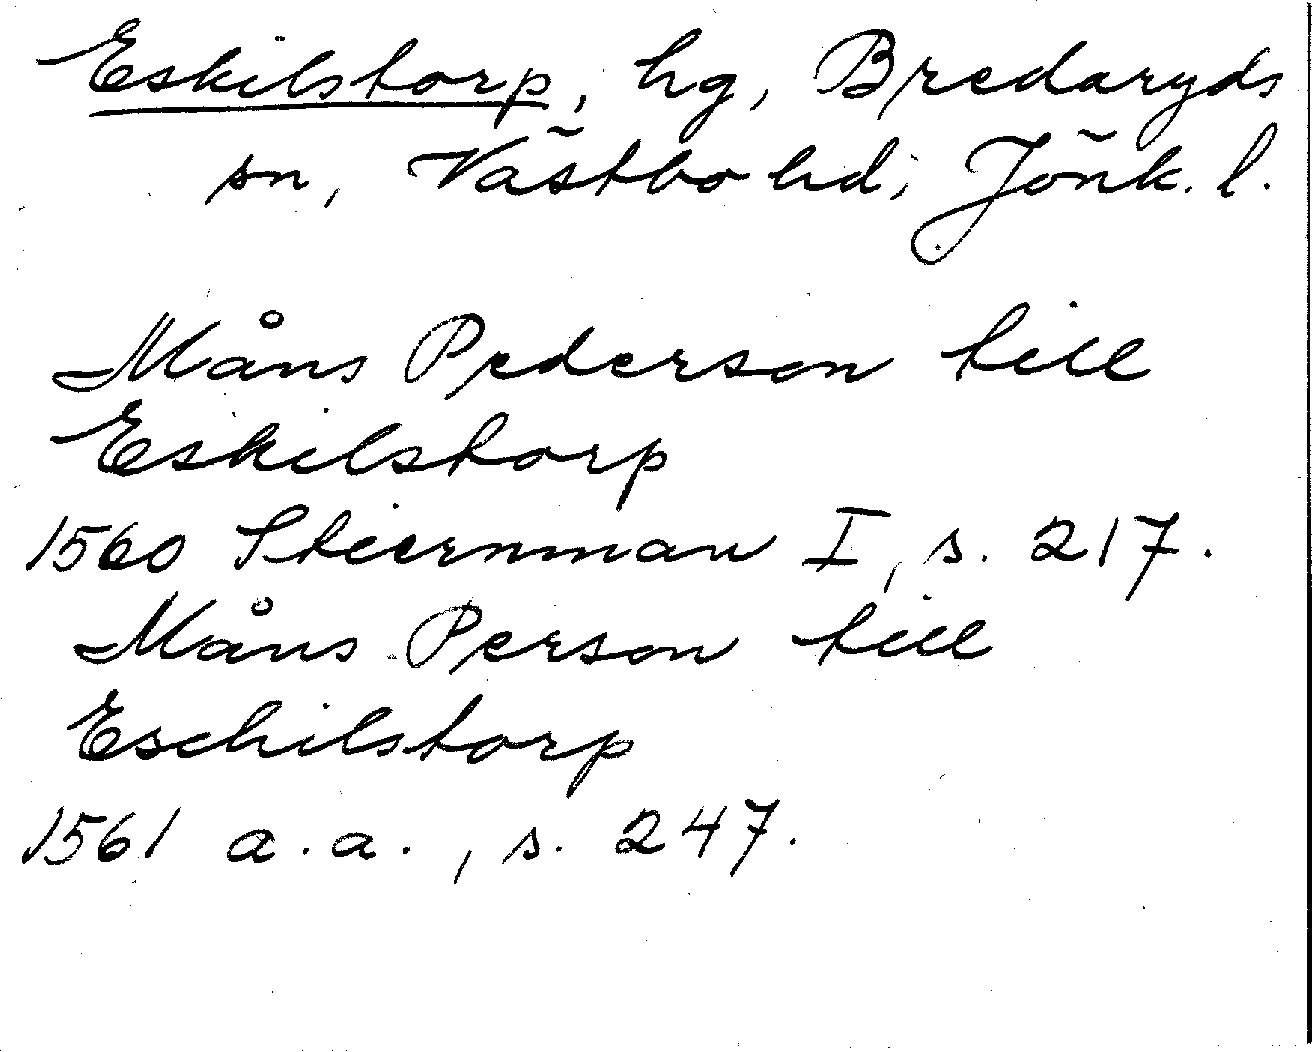 Eskilstorp, hg, Bredaryds
sn, Västbo hd, Jönk. l.
Måns Pederson till
Eskilstorp
1560 Stiernman I, s. 217.
Måns Person till
Eschilstorp
1561 a.a., s. 247.